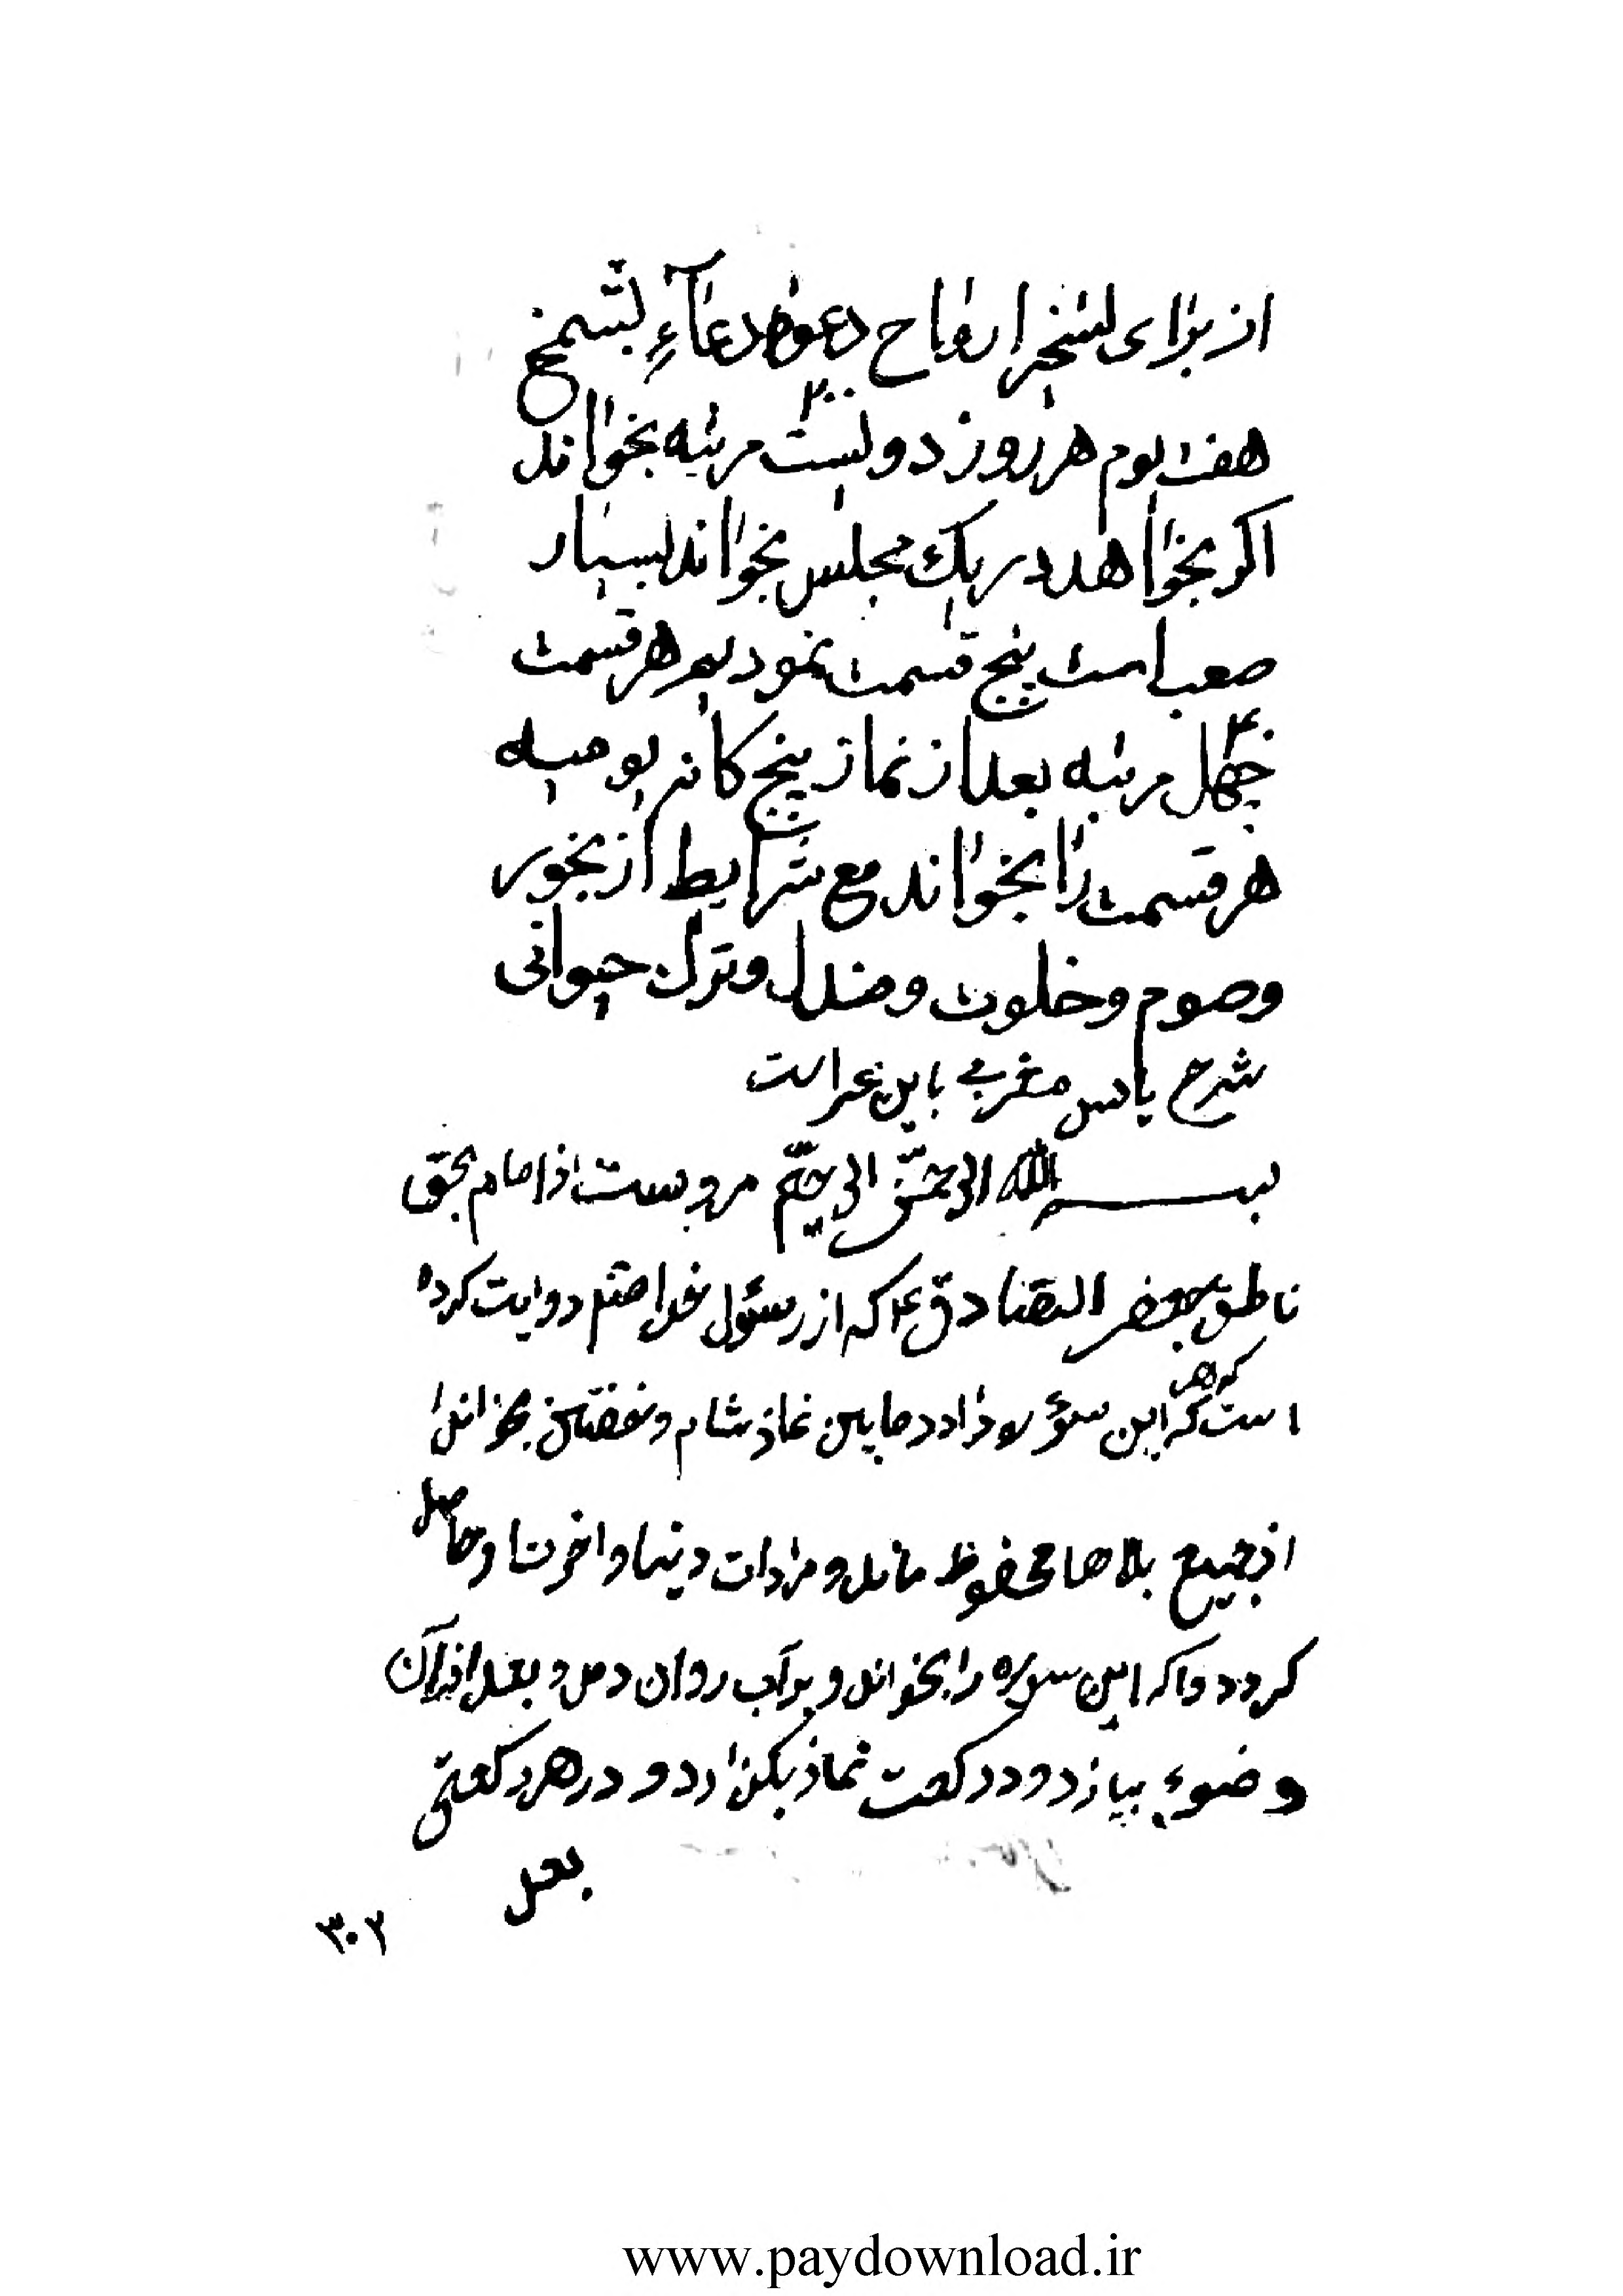 از برای تسخیر ارواح دعوة دعاءِ تشمخ
۲۰۰
هفت یوم هر روز دویست مرتبه بخواند
اکر بخواهد در یک مجلس بخواند بسیار
صعب است پنج قسمت نمودیم هر قسمت
۴۰
چهل مرتبه بعد از نماز پنج کانه یومیه
هر قسمت را بخواند مع شرایط از بخور
وصوم وخلوت ومندل وترک حیوانی
شرح یاس مغربی باین عبرات
بسم الله الرحمن الرحیم مرویست از امام بحق
ناطق جعفر الصادق ع که از رسول خدا صلم روایت کرده
که هر
است که این سوره را در مابین نماز شام وخفتن بخواند
از جمیع بلاها محفوظ ماند و مرادات دنیا و اخرت او حاصل
کردد واکر این سوره را بخواند و بر آب روان دمد و بعد از آن
وضوء بسازد ودو رکعت نماز بکزارد و در هر رکعتی
بعد
۳۰۲
www.paydownload.ir